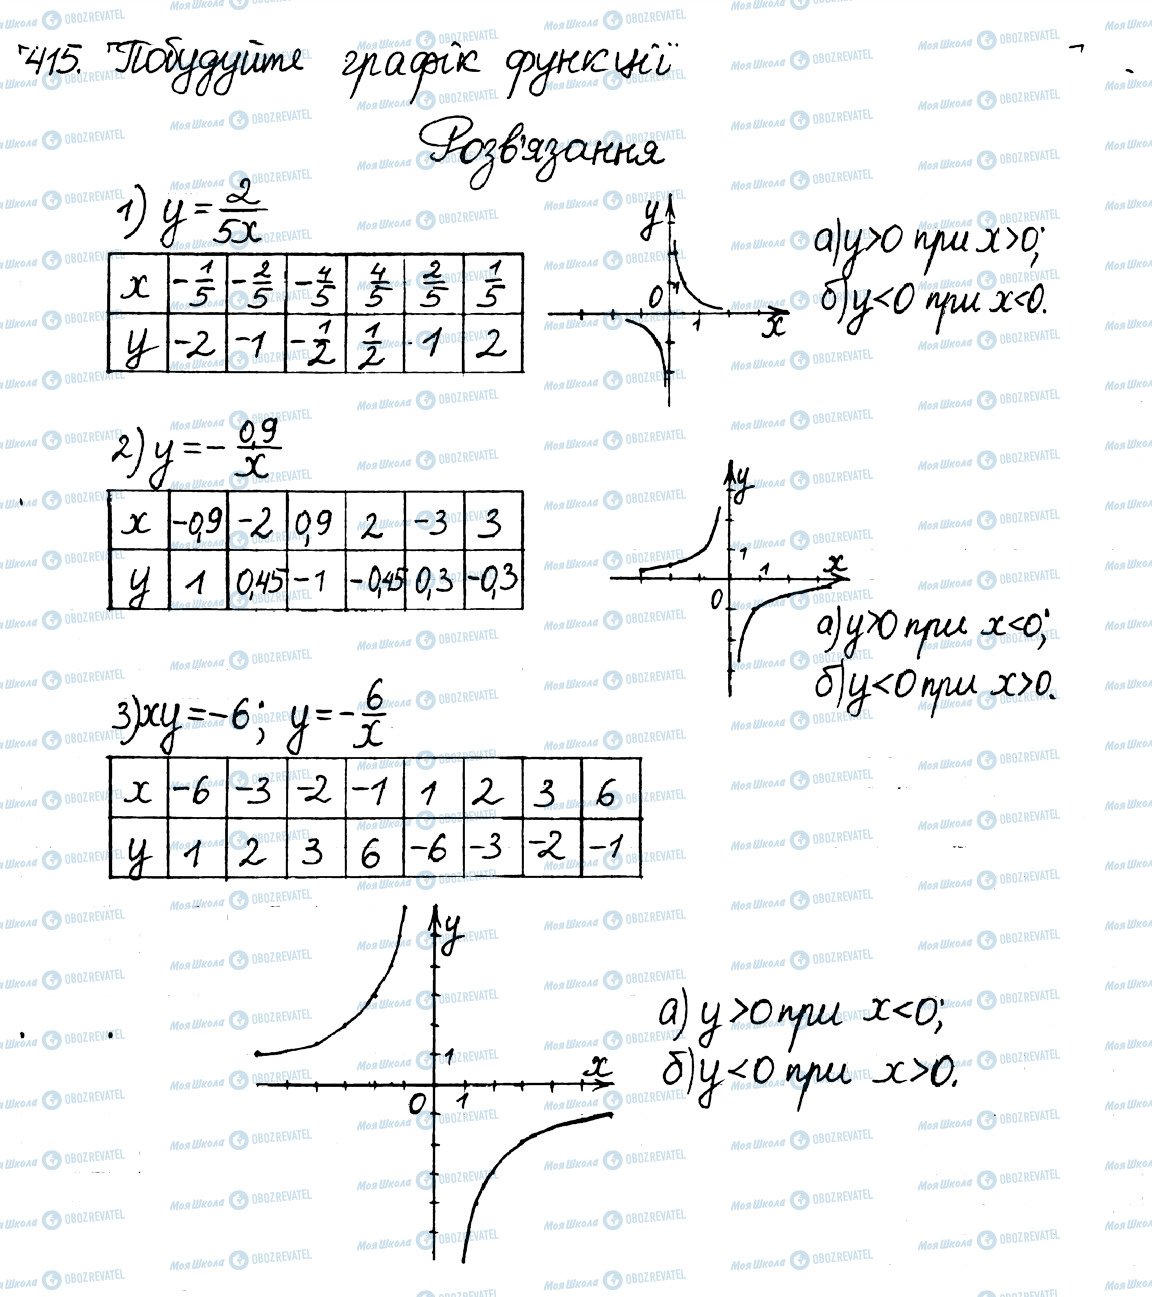 415. Побудуйте графік функції
Розв'язання
1) y = 2/5x
x | -1/5 | -2/5 | -4/5 | 4/5 | 2/5 | 1/5
y | -2 | -1 | -1/2 | 1/2 | 1 | 2
y
1
0
1
x
а) y>0 при x>0;
б) y<0 при x<0.
2) y = - 0,9/x
x | -0,9 | -2 | 0,9 | 2 | -3 | 3
y | 1 | 0,45 | -1 | -0,45 | 0,3 | -0,3
y
1
1
x
0
а) y>0 при x<0;
б) y<0 при x>0.
3) xy = -6; y = - 6/x
x | -6 | -3 | -2 | -1 | 1 | 2 | 3 | 6
y | 1 | 2 | 3 | 6 | -6 | -3 | -2 | -1
y
1
x
0
1
а) y>0 при x<0;
б) y<0 при x>0.
Моя Школа OBOZREVATEL